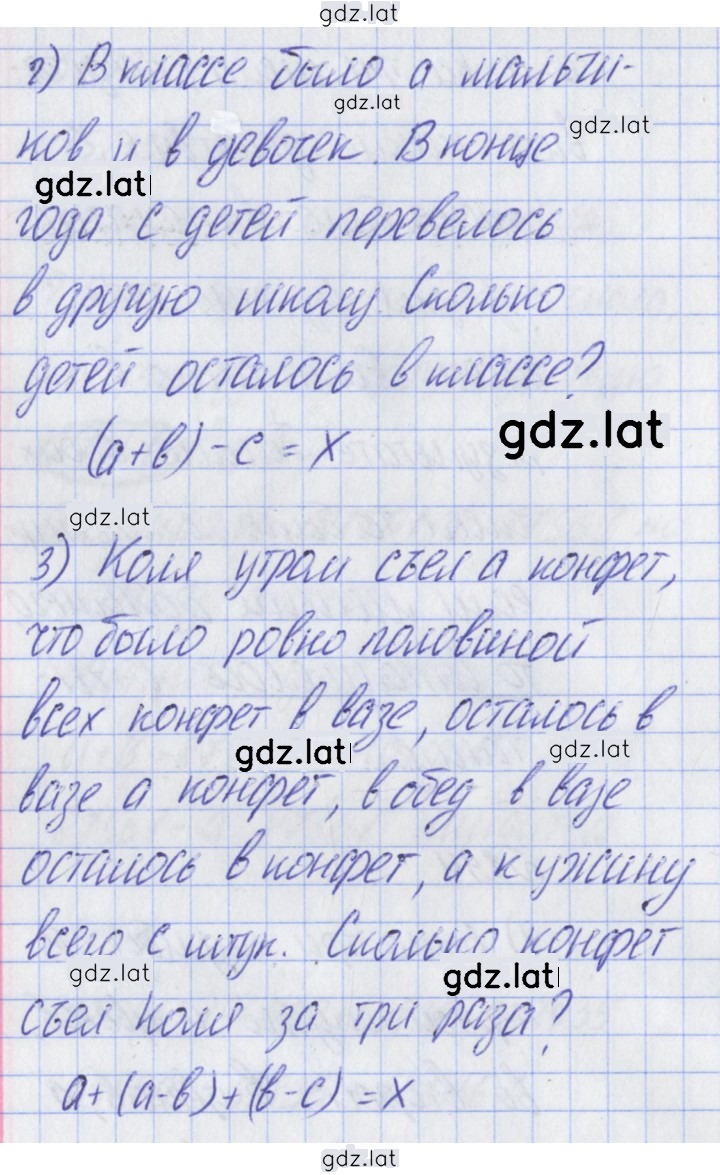 gdz.lat
г) В классе было а мальчи-
gdz.lat
ков и в девочек. В конце
gdz.lat
gdz.lat
года с детей перевелось
в другую школу. Сколько
детей осталось в классе?
(а+в)-с=х
gdz.lat
gdz.lat
з) Коля утром съел а конфет,
что было ровно половиной
всех конфет в вазе, осталось в
gdz.lat
gdz.lat
вазе а конфет, в обед в вазе
осталось в конфет, а к ужину
всего с штук. Сколько конфет
gdz.lat
gdz.lat
съел Коля за три раза?
а+(а-в)+(в-с)=х
gdz.lat